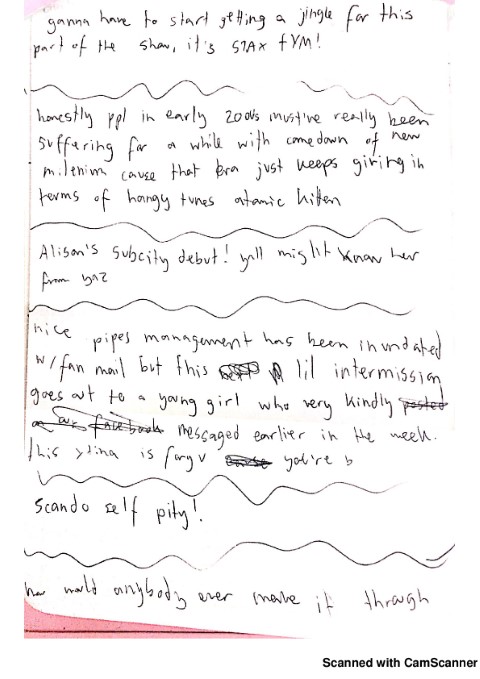 gonna have to start getting a jingle for this
part of the show, it's STAX tYM!
honestly ppl in early 2000s mustive really been
suffering for a while with comedown of new
milenium cause that era just keeps giving in
terms of hangy tunes atomic kitten
Alison's Subcity debut! yall might know her
from yaz
nice pipes management has been inundated
w/fan mail but this lil intermission
goes out to a young girl who very kindly posted
facebook messaged earlier in the week.
this is you're b
Scando self pity!
how would anybody ever make it through
Scanned with CamScanner